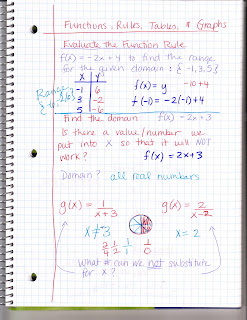 Functions, Rules, Tables, & Graphs
Evaluate the Function Rule
f(x) = -2x + 4 to find the range
for the given domain: {-1, 3, 5}
x y
-1 6
3 -2
5 -6
Range:
{-6, -2, 6}
f(x) = y -1·10+4
f(-1) = -2(-1)+4
Find the domain f(x) = 2x+3
Is there a value/number we
put into X so that it will NOT
work? f(x) = 2x+3
Domain? all real numbers
g(x) = 1/x+3 g(x) = 2/x-2
x ≠ 3 x = 2
2/4 1/2 1/1 1/0
What # can we not substitute
for x?